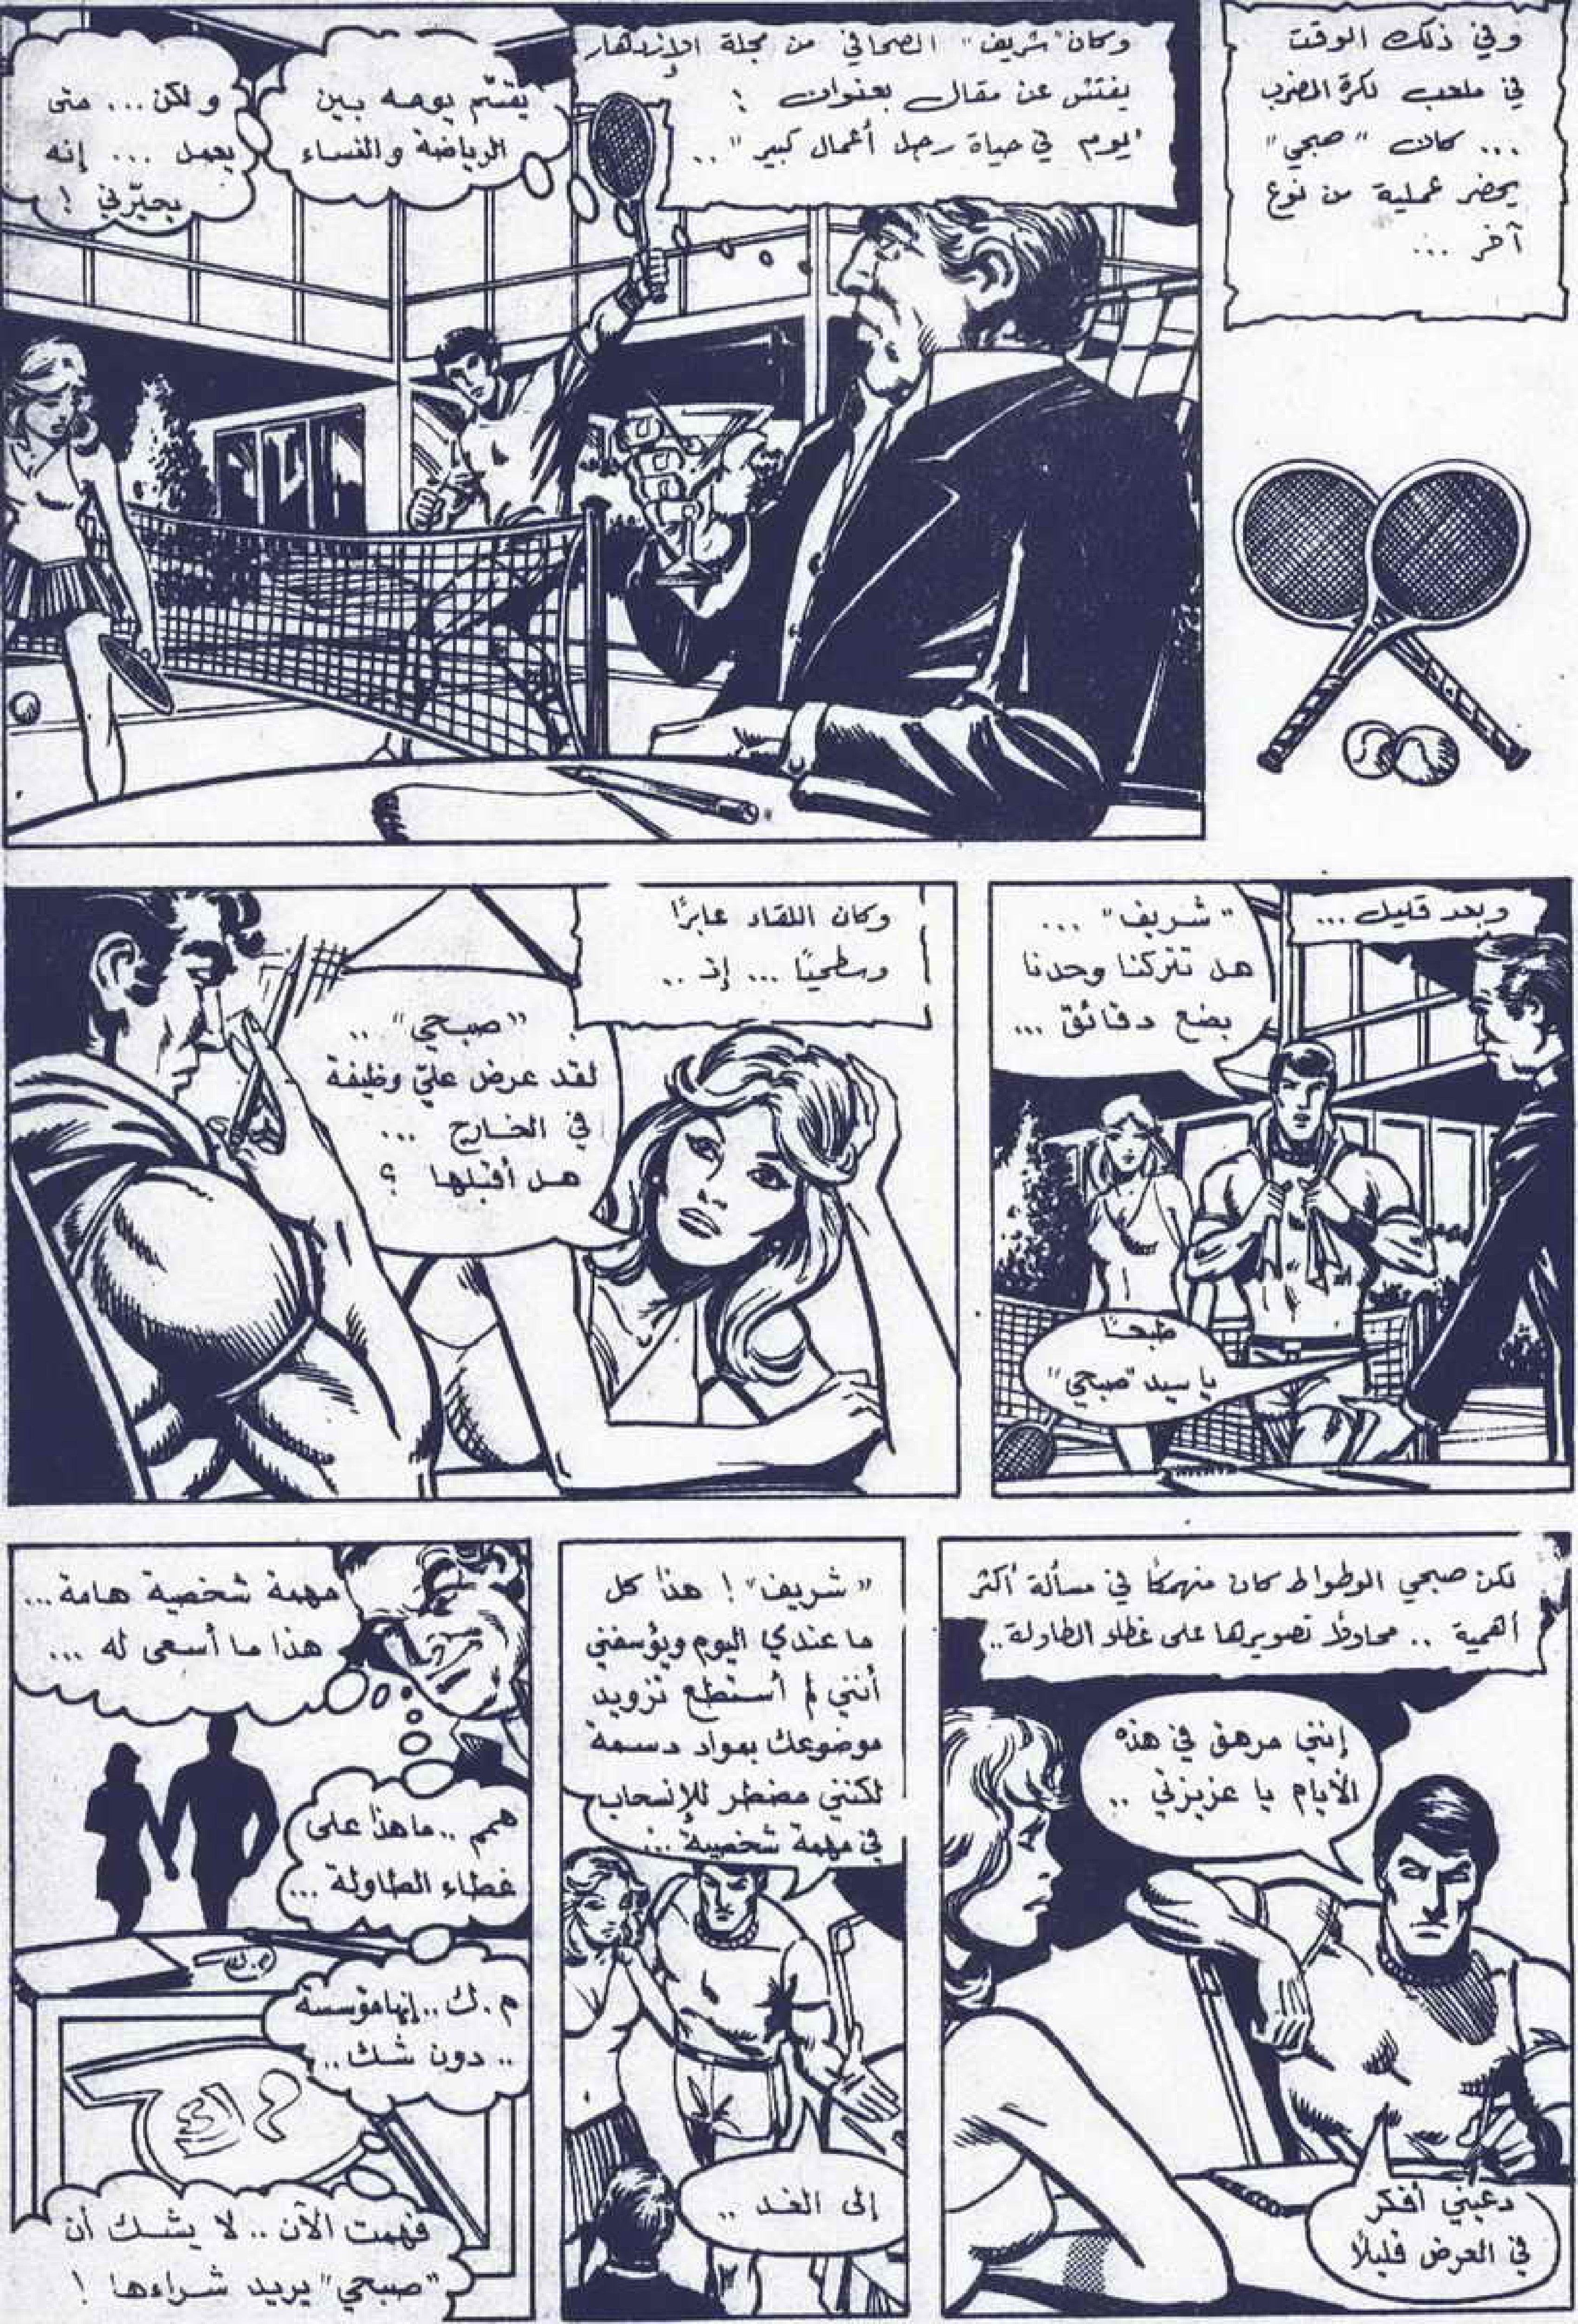 وفي ذلك الوقت
في ملعب لكرة المضرب
... كان "صبحي"
يحضر عملية من نوع
آخر ...
وكان "شريف" الصحافي من مجلة الإزدهار
يفتش عن مقال بعنوان :
"يوم في حياة رجل أعمال كبير" ..
يقسّم يومه بين
الرياضة والنساء
ولكن ... متى
يعمل ... إنه
يحيّرني !
وبعد قليل ...
"شريف" ...
هل تتركنا وحدنا
بضع دقائق ...
طبعًا
يا سيد "صبحي"
وكان اللقاء عابرًا
وسطحيًا ... إذ ..
"صبحي" ..
لقد عرض عليّ وظيفة
في الخارج ...
هل أقبلها ؟
لكن صبحي الوطواط كان منهمكًا في مسألة أكثر
أهمية .. محاولاً تصويرها على غطاء الطاولة ..
إنني مرهق في هذه
الأيام يا عزيزتي ..
دعيني أفكر
في العرض قليلاً
"شريف" ! هذا كل
ما عندي اليوم ويؤسفني
أنني لم أستطع تزويد
موضوعك بمواد دسمة
لكنني مضطر للإنسحاب
في مهمة شخصية ...
إلى الغد ..
مهمة شخصية هامة ...
هذا ما أسعى له ...
همم .. ما هذا على
غطاء الطاولة ...
م.ك .. إنها مؤسسة
.. دون شك ..
م.ك
فهمت الآن .. لا يشك أن
"صبحي" يريد شراءها !